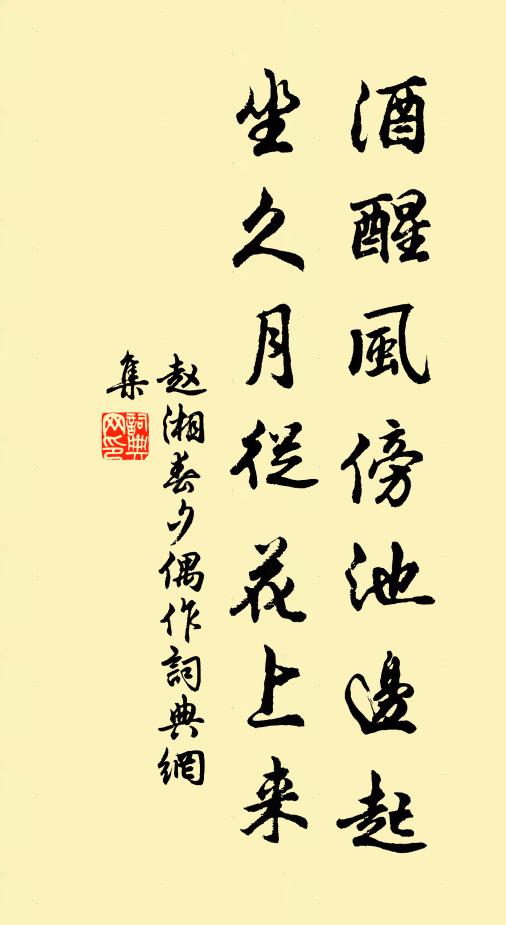 酒醒風傍池邊起
坐久月從花上来
赵湘春夕偶作詞典網
集
詞典
网印